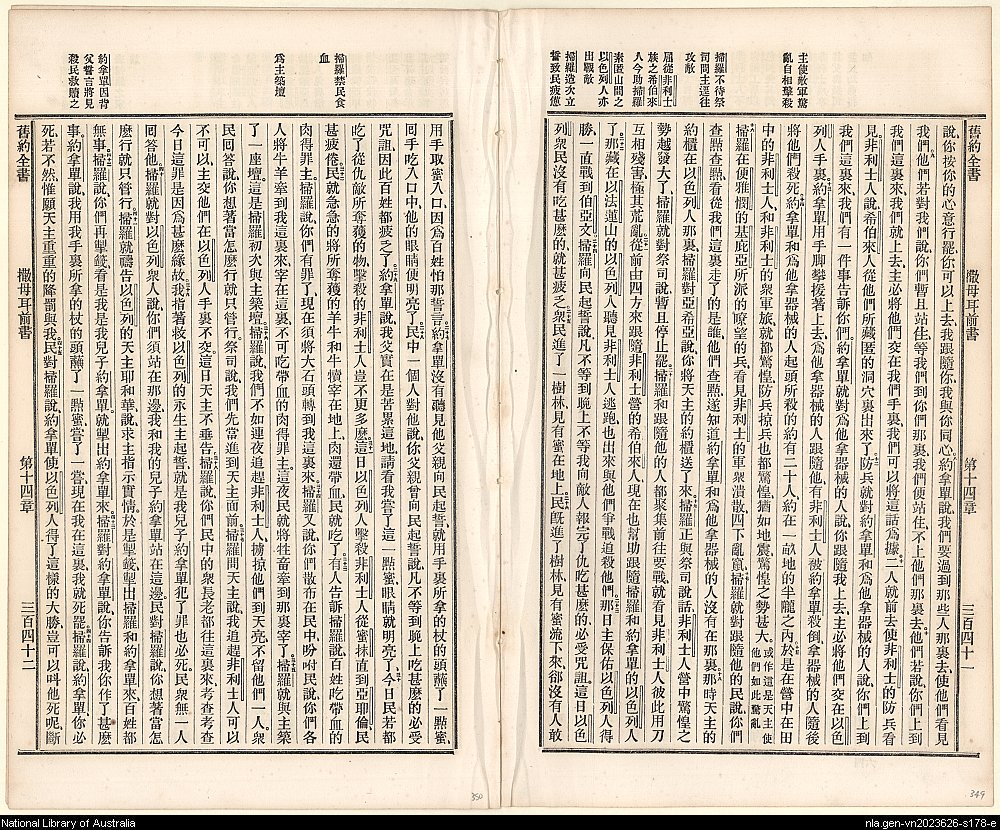 主使敵軍驚
亂自相擊殺
掃羅不待祭
司問主逕往
攻敵
屆從非利士
族之希伯來
人今助掃羅
素匿山間之
以色列人亦
出戰敵
掃羅造次立
誓致民疲憊
舊約全書
撒母耳前書
第十四章
三百四十一
說、你按你的心意行罷、你可以上去、我跟隨你、我與你同心、約拿單說、我們要過到那些人那裏去、使他們看見
我們、他們若對我們說、你們暫且站住、等我們到你們那裏、我們便站住、不上他們那裏去、他們若說、你們上到
我們這裏來、我們就上去、主必將他們交在我們手裏、我們可以將這話爲據、二人就前去使非利士的防兵看
見、非利士人說、希伯來人從他們所藏匿的洞穴裏出來了、防兵就對約拿單和爲他拿器械的人說、你們上到
我們這裏來、我們有一件事告訴你們、約拿單就對爲他拿器械的人說、你跟隨我上去、主必將他們交在以色
列人手裏、約拿單用手脚攀援著上去、爲他拿器械的人跟隨他、有非利士人被約拿單殺倒、拿器械的人隨後
將他們殺死、約拿單和爲他拿器械的人起頭所殺的約有二十人、約在一畝地的半隴之內、於是在營中在田
中的非利士人、和非利士的衆軍旅、就都驚惶、防兵掠兵也都驚惶、猶如地震、驚惶之勢甚大、或作這是天主使他們如此驚亂
掃羅在便雅憫的基庇亞所派的嘹望的兵、看見非利士的軍衆潰散、四下亂竄、掃羅就對跟隨他的民說、你們
查點查點、看從我們這裏走了的是誰、他們查點、遂知道約拿單和爲他拿器械的人沒有在那裏、那時天主的
約櫃在以色列人那裏、掃羅對亞希亞說、你將天主的約櫃送了來、掃羅正與祭司說話、非利士人營中驚惶之
勢越發大了、掃羅就對祭司說、暫且停止罷、掃羅和跟隨他的人都聚集前往要戰、就看見非利士人彼此用刀
互相殘害、極其荒亂、從前由四方來跟隨非利士營的希伯來人、現在也幫助跟隨掃羅和約拿單的以色列人
了、那藏在以法蓮山的以色列人、聽見非利士人逃跑、也出來與他們爭戰追殺他們、那日主保佑以色列人得
勝、一直戰到伯亞文、掃羅向民起誓說、凡不等到晚上、不等我向敵人報完了仇吃甚麼的、必受咒詛、這日以色
列衆民沒有吃甚麼的、就甚疲乏、衆民進了一樹林、見有蜜在地上、民旣進了樹林、見有蜜流下來、卻沒有人敢
掃羅禁民食
血
爲主築壇
約拿單因背
父誓言將見
殺民救贖之
用手取蜜入口、因爲百姓怕那誓言、約拿單沒有聽見他父親向民起誓、就用手裏所拿的杖的頭蘸了一點蜜、
回手吃入口中、他的眼睛便明亮了、民中一個人對他說、你父親曾向民起誓說、凡不等到晚上吃甚麼的必受
咒詛、因此百姓都疲乏了、約拿單說、我父實在是苦累這地、請看我嘗了這一點蜜、眼睛就明亮了、今日民若都
吃了從仇敵所奪獲的物、擊殺的非利士人豈不更多麼、這日以色列人擊殺非利士人從蜜抹直到亞耶倫、民
甚疲憊、民就急急的將所奪獲的羊牛和牛犢宰在地上、肉還帶血、民就吃了、有人告訴掃羅說、百姓吃帶血的
肉得罪主、掃羅說、你們有罪了、現在須將大石頭轉到我這裏來、掃羅又說、你們散布在民中、吩咐民說、你們各
人將牛羊牽到我這裏來、宰在這裏、不可吃帶血的肉得罪主、這夜民就將牲畜牽到那裏宰了、掃羅就與主築
了一座壇、這是掃羅初次與主築壇、掃羅說、我們不如連夜追趕非利士人、擄掠他們到天亮、不留他們一人、衆
民回答說、你想著當怎麼行、就只管行、祭司說、我們先當進到天主面前、掃羅問天主說、我追趕非利士人可以
不可以、主交他們在以色列人手裏不交、這日天主不垂告、掃羅說、你們民中的衆長老都往這裏來、考查考查
今日這罪是因爲甚麼緣故、我指著救以色列的永生主起誓、就是我兒子約拿單犯了罪也必死、民衆無一人
回答他、掃羅就對以色列衆人說、你們須站在那邊、我和我的兒子約拿單站在這邊、民對掃羅說、你想著當怎
麼行、就只管行、掃羅就禱告以色列的天主耶和華說、求主指示實情、於是掣籤、掣出掃羅和約拿單來、百姓都
無事、掃羅說、你們再掣籤、看是我是我兒子約拿單、就掣出約拿單來、掃羅對約拿單說、你告訴我你作了甚麼
事、約拿單說、我用我手裏所拿的杖的頭蘸了一點蜜嘗了一嘗、現在我在這裏、我就死罷、掃羅說、約拿單、你必
死、若不然、惟願天主重重的降罰與我、民對掃羅說、約拿單使以色列人得了這樣的大勝、豈可以叫他死呢、斷
舊約全書
撒母耳前書
第十四章
三百四十二
350
349
National Library of Australia
nla.gen-vn2023626-s178-e